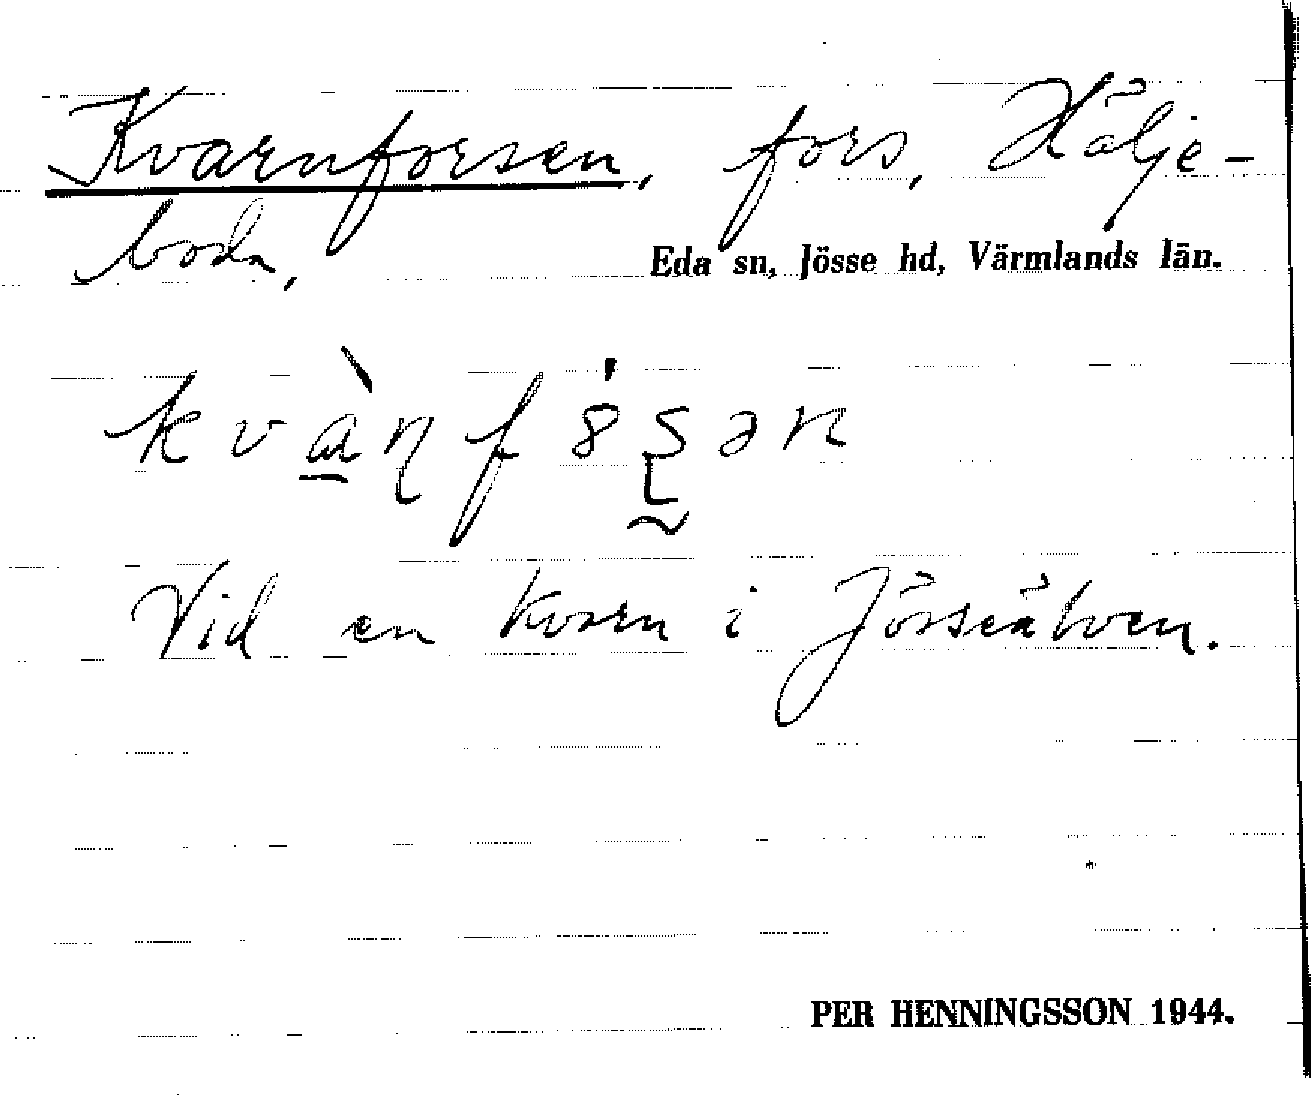 Kvarnforsen, fors, Hälje-
boda,
Eda sn, Jösse hd, Värmlands län.
kvàɳf8́ʂən
Vid en kvarn i Jösseälven.
PER HENNINGSSON 1944.